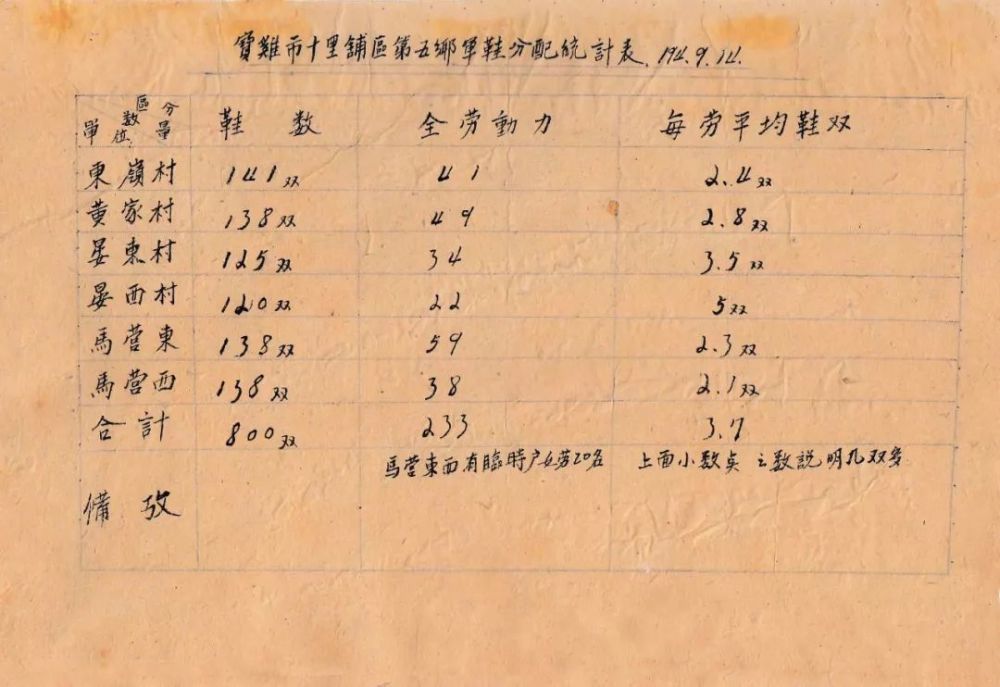 寶雞市十里舖區第五鄉軍鞋分配統計表.194.9.14.
區分 數量 單位 鞋数 全劳動力 每劳平均鞋双
東嶺村 141双 41 2.4双
黄家村 138双 49 2.8双
晏東村 125双 34 3.5双
晏西村 120双 22 5双
馬营東 138双 59 2.3双
馬营西 138双 38 2.1双
合計 800双 233 3.7
備攷 馬营東西有臨時户女劳20名 上面小数点之数説明几双多